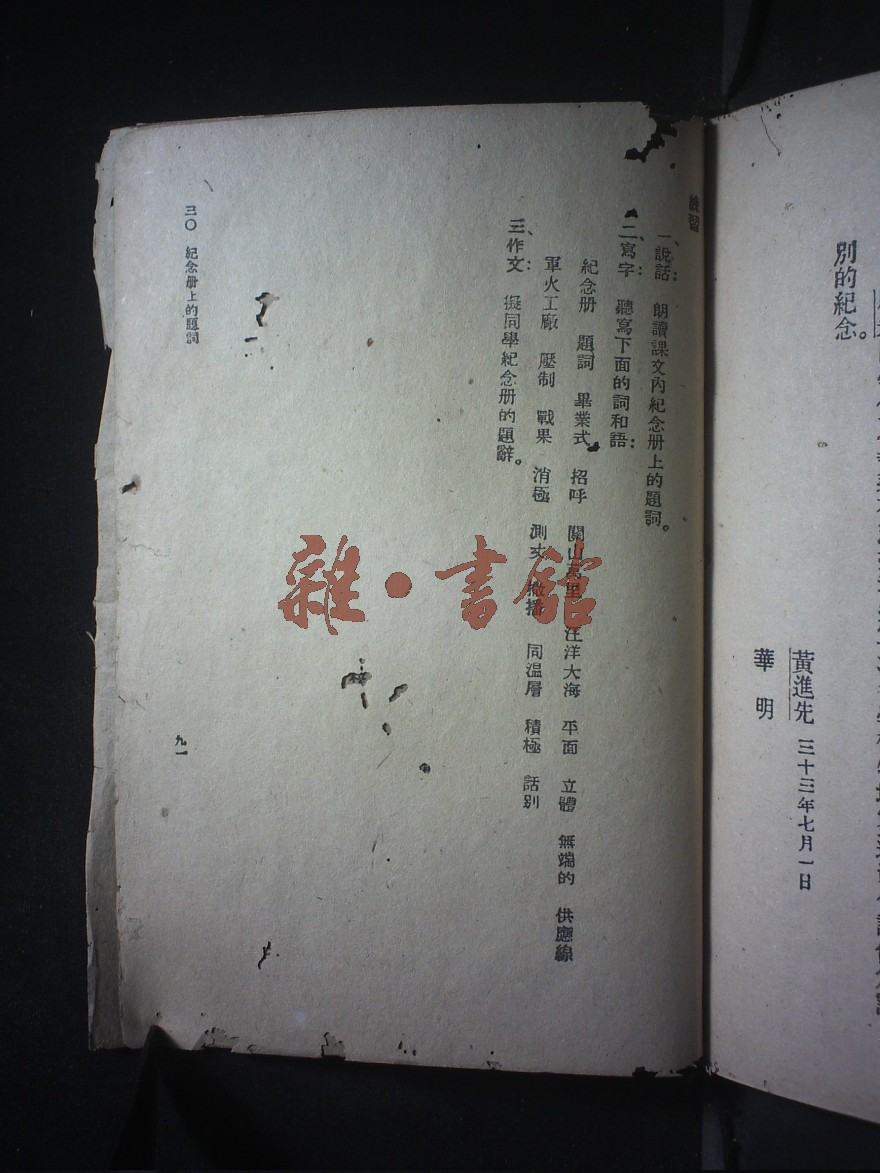 別的紀念。
黃進先 三十三年七月一日
華 明
練習
一、說話： 朗讀課文內紀念册上的題詞。
二、寫字： 聽寫下面的詞和語：
紀念册 題詞 畢業式 招呼 關山萬里 汪洋大海 平面 立體 無端的 供應線
軍火工廠 壓制 戰果 消極 測 撒播 同温層 積極 話别
三、作文： 擬同學紀念册的題辭。
三〇 紀念册上的題詞
九一
雜·書館